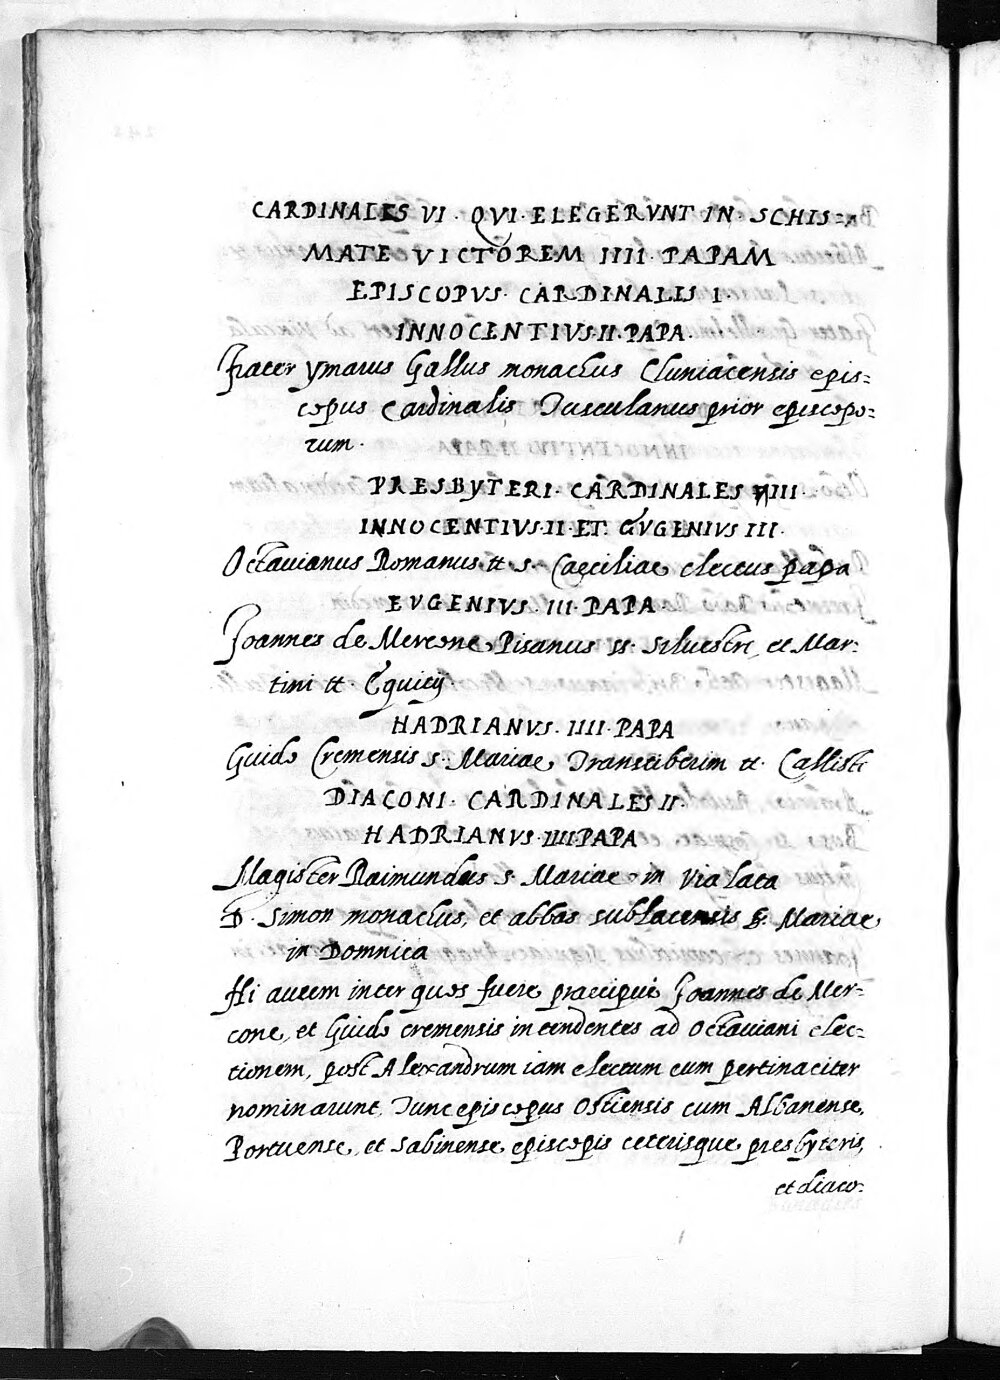 CARDINALES VI. QVI. ELEGERVNT IN. SCHIS=
MATE VICTOREM IIII. PAPAM
EPISCOPVS. CARDINALIS I.
INNOCENTIVS. II. PAPA.
Frater ymarus Gallus monachus Cluniacensis epis=
copus Cardinalis Tusculanus prior episcopo=
rum.
PRESBYTERI. CARDINALES III.
INNOCENTIVS. II. ET. EVGENIVS III.
Octavianus Romanus tt s. Caeciliae electus papa
EVGENIVS. III. PAPA
Joannes de Mercone, Pisanus ss. Siluestri, et Mar=
tini tt. Equitij
HADRIANVS. IIII. PAPA
Guido Cremensis s. Mariae, Transtiberim tt. Callisti
DIACONI. CARDINALES II.
HADRIANVS. IIII. PAPA
Magister Raimundus s. Mariae in Via Lata
D. Simon monachus, et abbas sublacensis S. Mariae
in Domnica
Hi autem inter quos fuere, praecipui Joannes de Mer=
cone, et Guido cremensis intendentes ad Octauiani elec=
tionem, post Alexandrum iam electum eum pertinaciter
nominarunt. Tunc episcopus Ostiensis cum Albanense,
Portuense, et Sabinense, episcopis ceterisque, presbyteris,
et diaco=